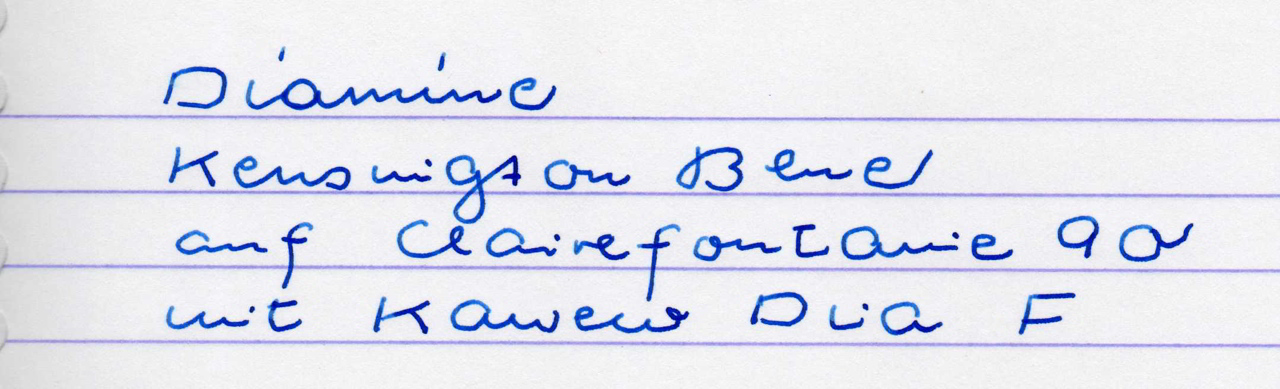 Diamine
Kensington Blue
auf Clairefontaine 90
mit Kaweco Dia F